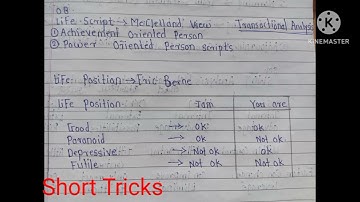 OB
Life Script → McClelland View Transactional Analysis
① Achievement Oriented Person
② Power Oriented Person scripts
KINEMASTER
Life Position → Eric Berne
Life Position I am You are
Good → OK OK
Paranoid → OK Not OK
Depressive → Not OK OK
Futile → Not OK Not OK
Short Tricks